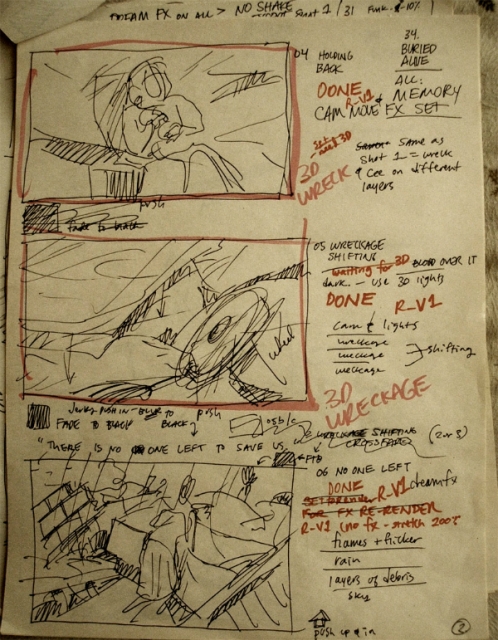 FX ON ALL > NO SHAKE Shot 1/31
34.
BURIED
ALIVE
04 HOLDING
BACK
DONE
R-V1
ALL:
MEMORY
CAM MOVE & FX SET
3D
WRECK
SAME AS
SHOT 1 = wreck
& Cee on different
layers
push
05 WRECKAGE
SHIFTING
waiting for 3D
OVER IT
dark.. - use 3D lights
DONE R_V1
cam & lights
wreckage
wreckage
wreckage
shifting
wheel
3D
WRECKAGE
JERKY PUSH IN
push
FADE TO BLACK
"THERE IS NO ONE LEFT TO SAVE US."
WRECKAGE SHIFTING
CROSSFADE
(2 or 3)
06 NO ONE LEFT
DONE
R-V1 dreamfx
FOR FX RE-RENDER
R-V1 (no fx - stretch 200%
flames + flicker
rain
layers of debris
sky
push up & in
2